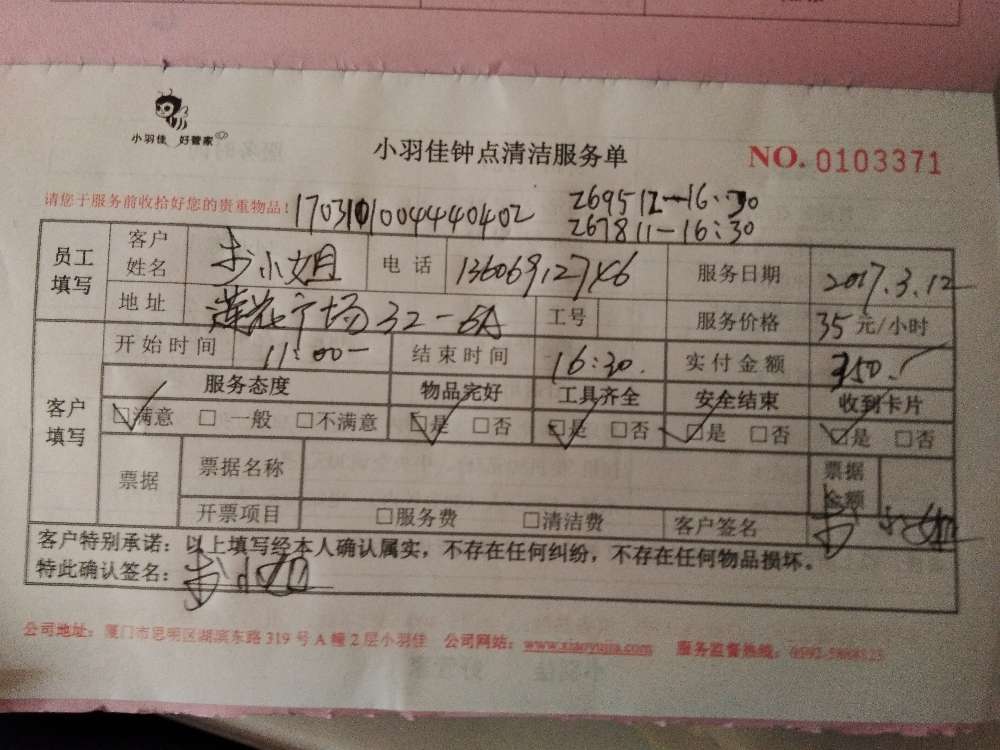 小羽佳 好管家
小羽佳钟点清洁服务单
NO. 0103371
请您于服务前收拾好您的贵重物品!
170310100444040402
269512-16:30
267811-16:30
员工填写 客户姓名 小姐 电话 服务日期 2017.3.12
地址 莲花广场32-6A 工号 服务价格 35元/小时
客户填写 开始时间 11:00- 结束时间 16:30. 实付金额 350.
服务态度 物品完好 工具齐全 安全结束 收到卡片
☑满意 □一般 □不满意 ☑是 □否 ☑是 □否 ☑是 □否 ☑是 □否
票据 票据名称 票据金额
开票项目 □服务费 □清洁费 客户签名 小姐
客户特别承诺:以上填写经本人确认属实,不存在任何纠纷,不存在任何物品损坏。
特此确认签名: 小姐
公司地址:厦门市思明区湖滨东路319号A幢2层小羽佳 公司网站:www.xiaoyujia.com 服务监督热线: